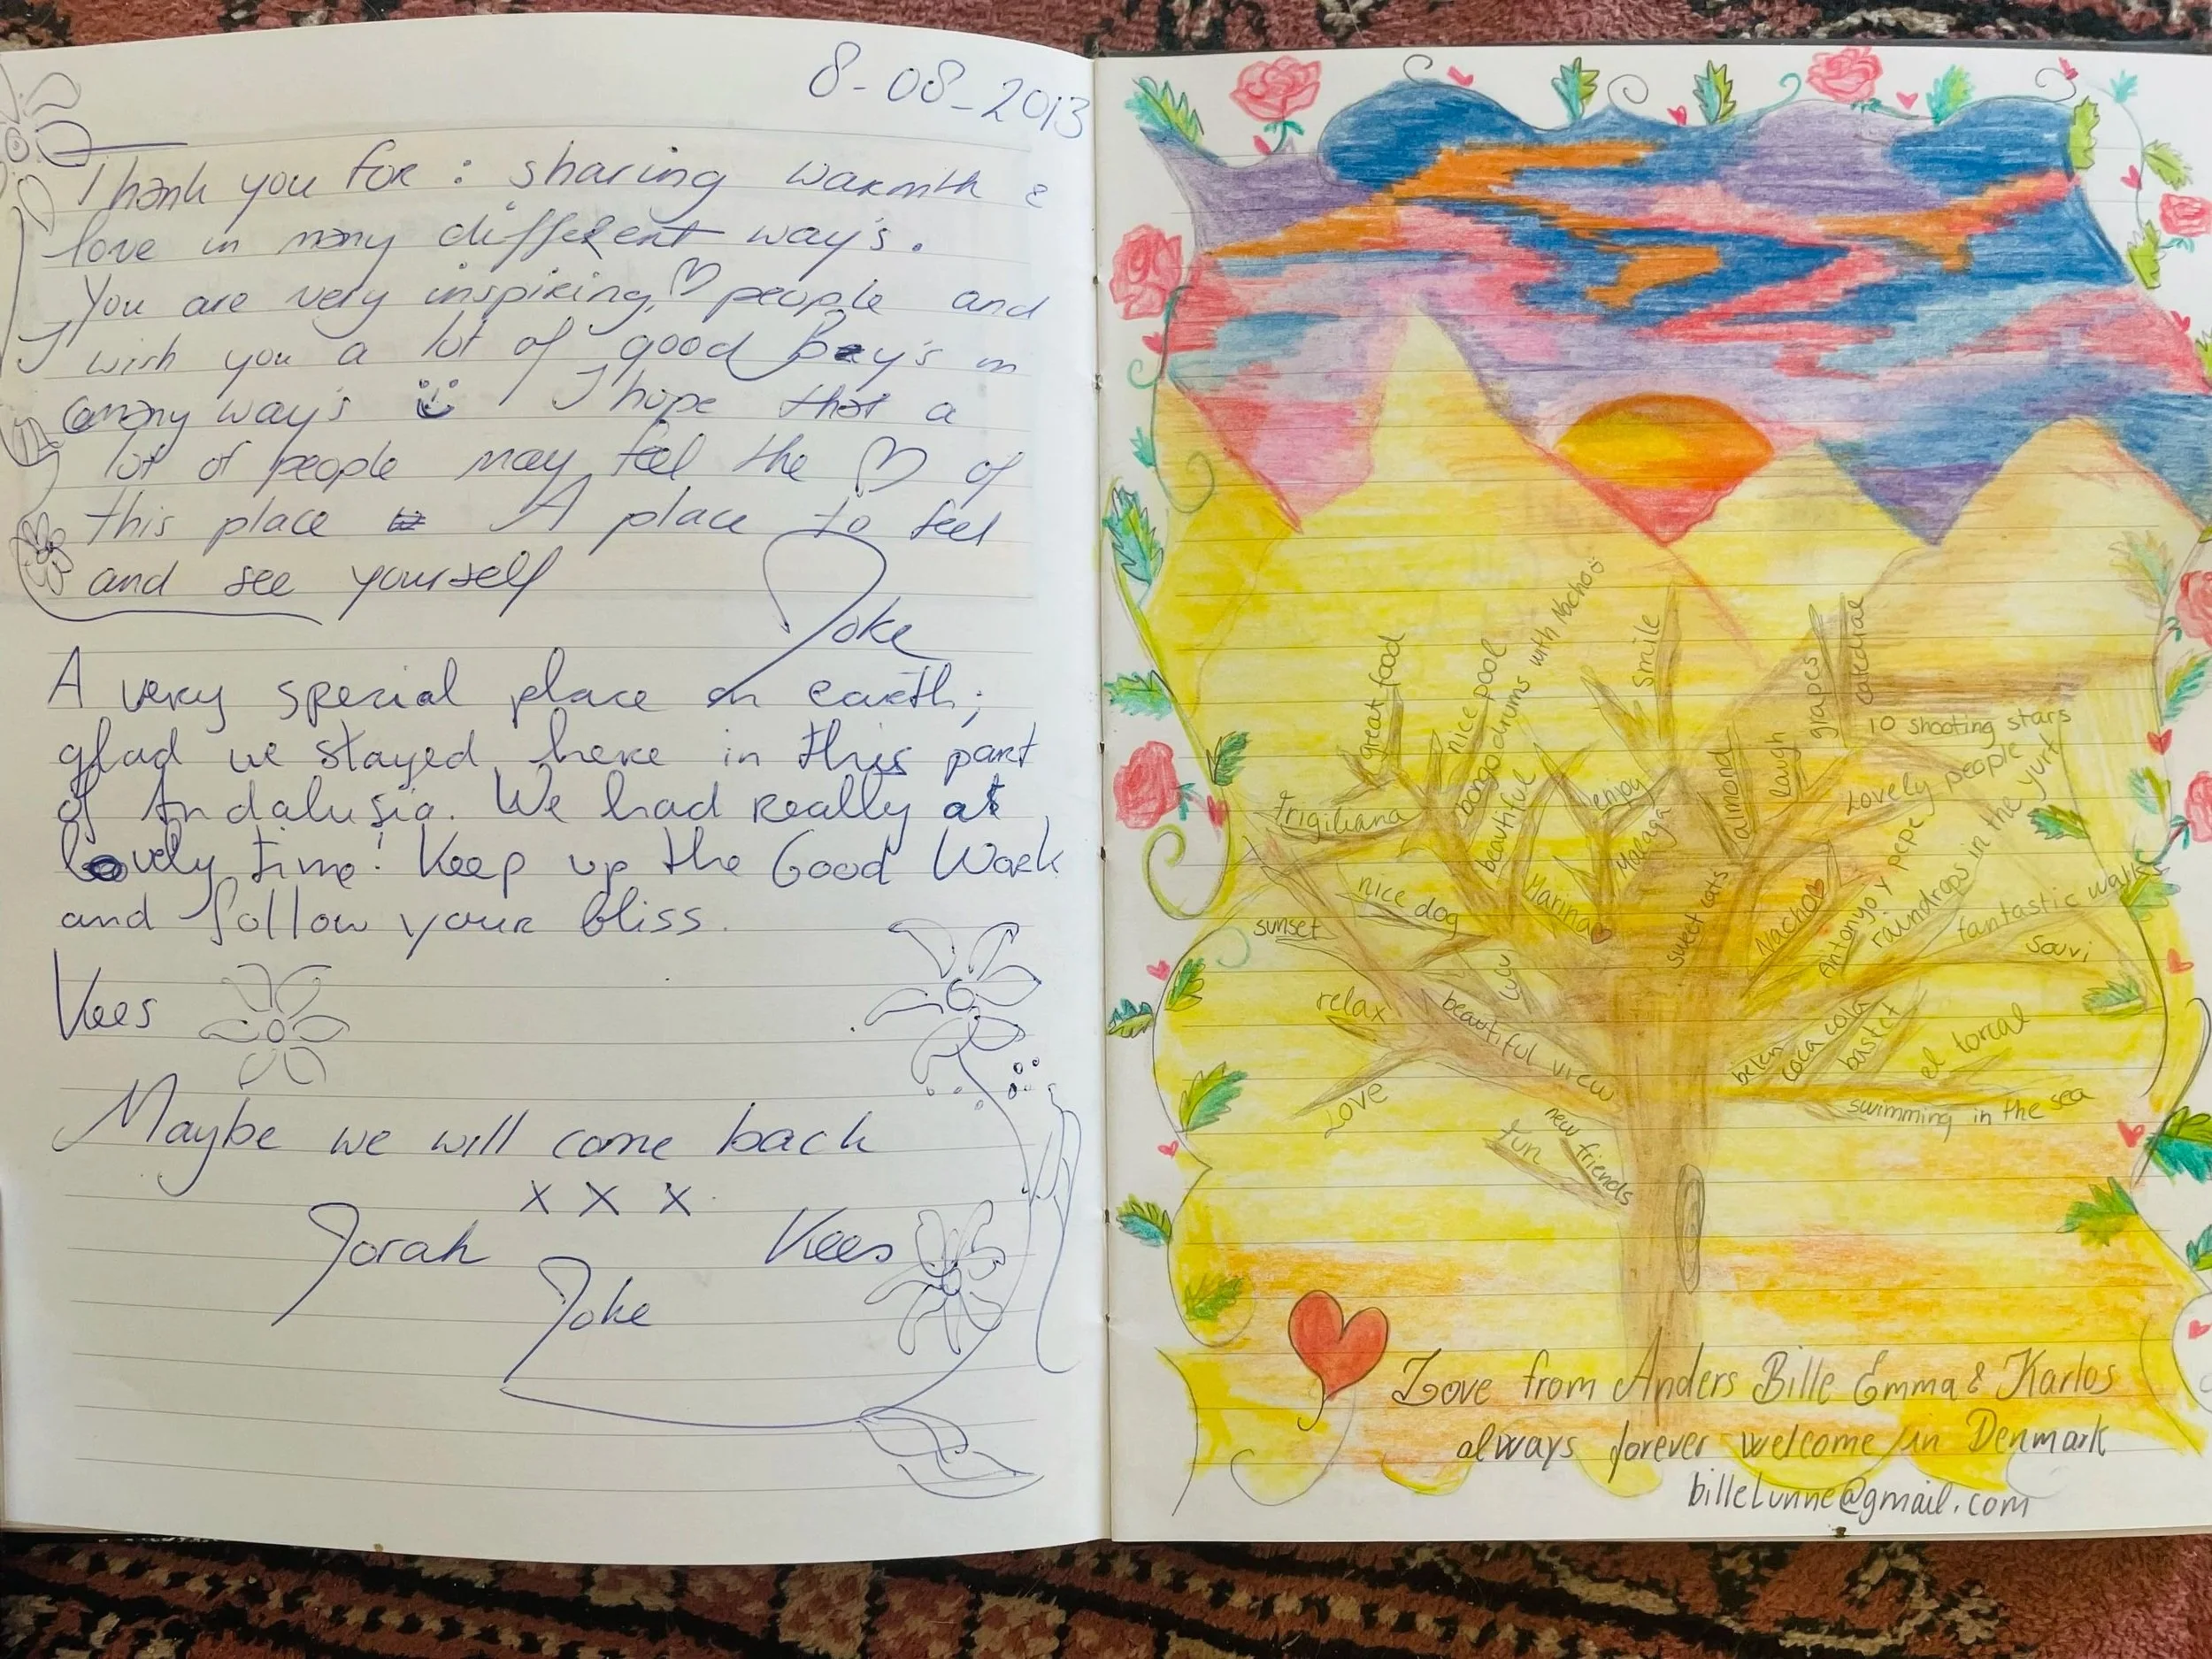 8-08-2013
Thank you for : sharing warmth &
love in many different way's.
You are very inspiring ♡ people and
I wish you a lot of good Bay's in
many way's I hope that a
lot of people may feel the ♡ of
this place A place to feel
and see yourself
Joke
A very special place on earth;
glad we stayed here in this part
of Andalusia. We had really a
lovely time! Keep up the Good Work
and follow your bliss.
Kees
Maybe we will come back
x x x
Jorah Kees
Joke
great food
nice pool
bongodrums with Nacho
smile
grapes
10 shooting stars
Lovely people
frigiliana
beautiful
enjoy
Malaga
almond
laugh
sunset
nice dog
Marina
sweet cats
Nacho
Antonyo y pepe
raindrops in the yurt
fantastic walks
souvi
relax
lulu
beautiful view
belen
coca cola
bastet
el torcal
Love
swimming in the sea
fun
new friends
Love from Anders Bille Emma & Karlos
always forever welcome in Denmark
billeLunne@gmail.com